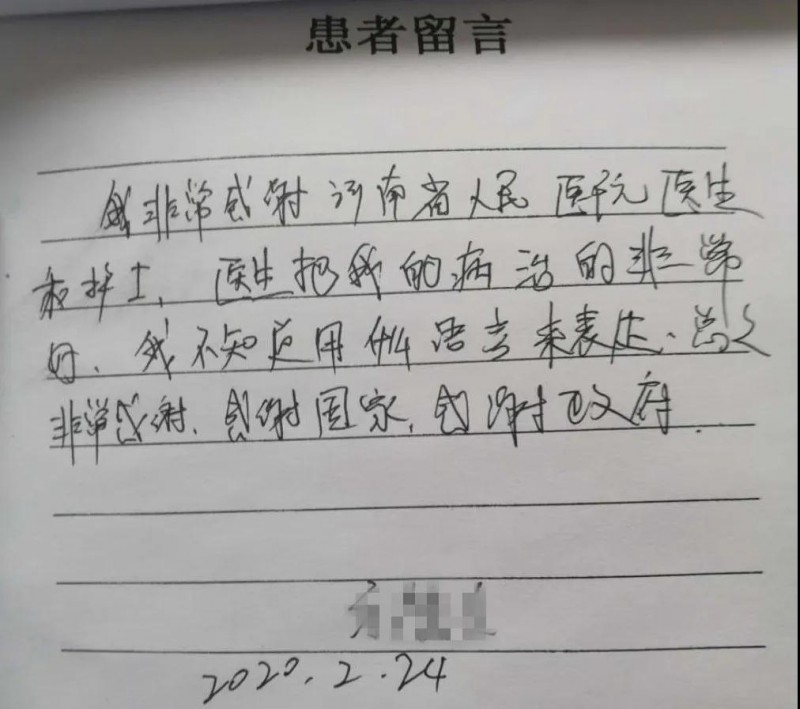 患者留言
我非常感谢河南省人民医院医生
和护士、医生把我的病治的非常
好、我不知应用什么语言来表达、总之
非常感谢、感谢国家、感谢政府.
2020.2.24